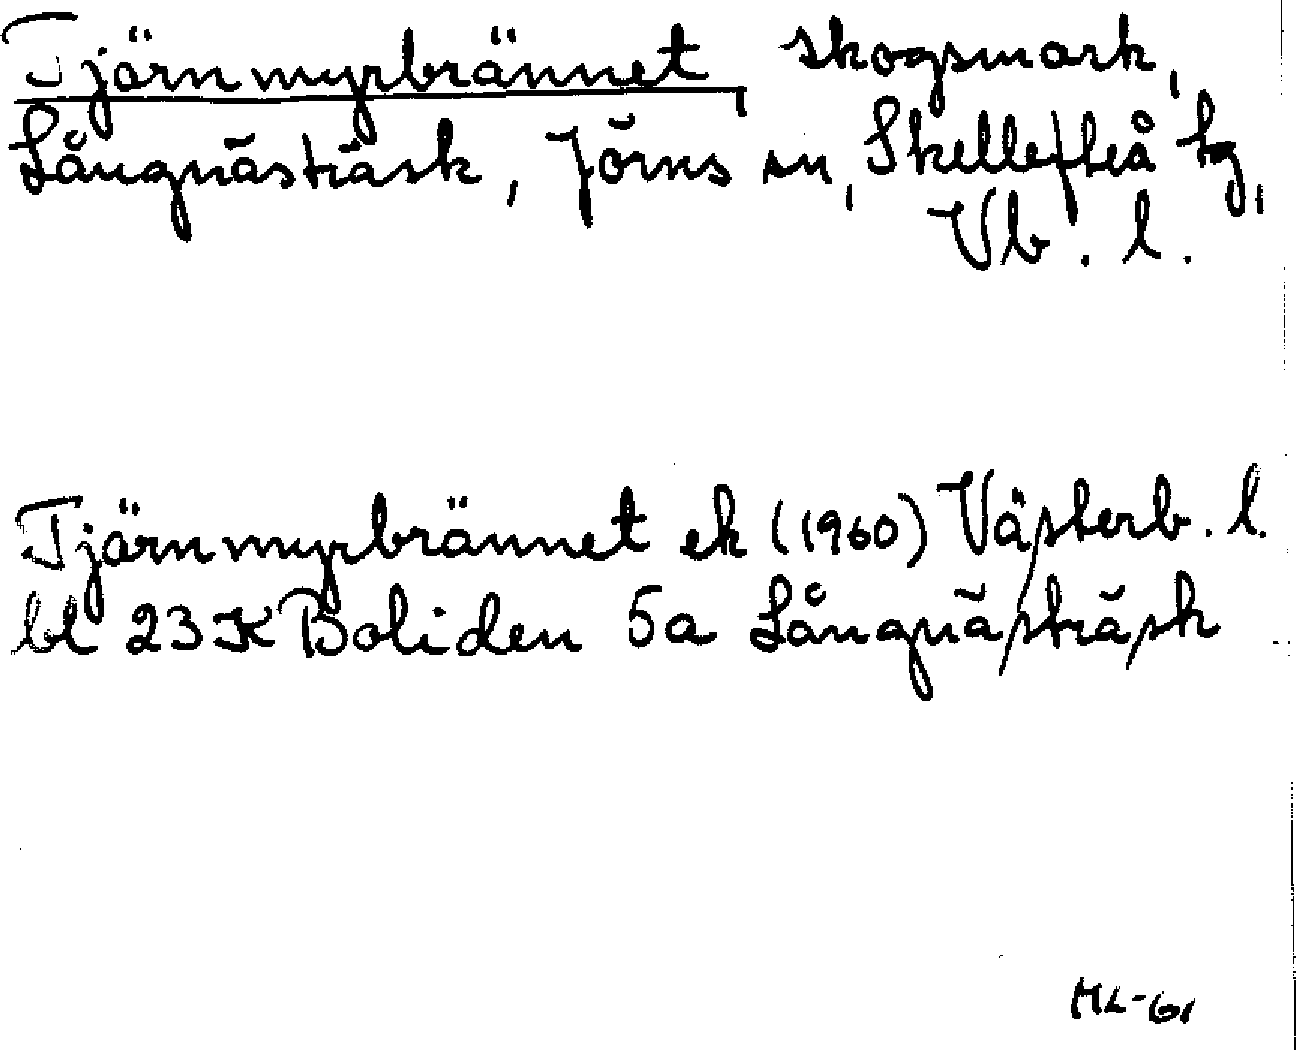 Tjärnmyrbrännet, skogsmark,
Långnästräsk, Jörns sn, Skellefteå tg,
Vb. l.
Tjärnmyrbrännet ek (1960) Västerb. l.
bl 23K Boliden 5a Långnästräsk
ML-61